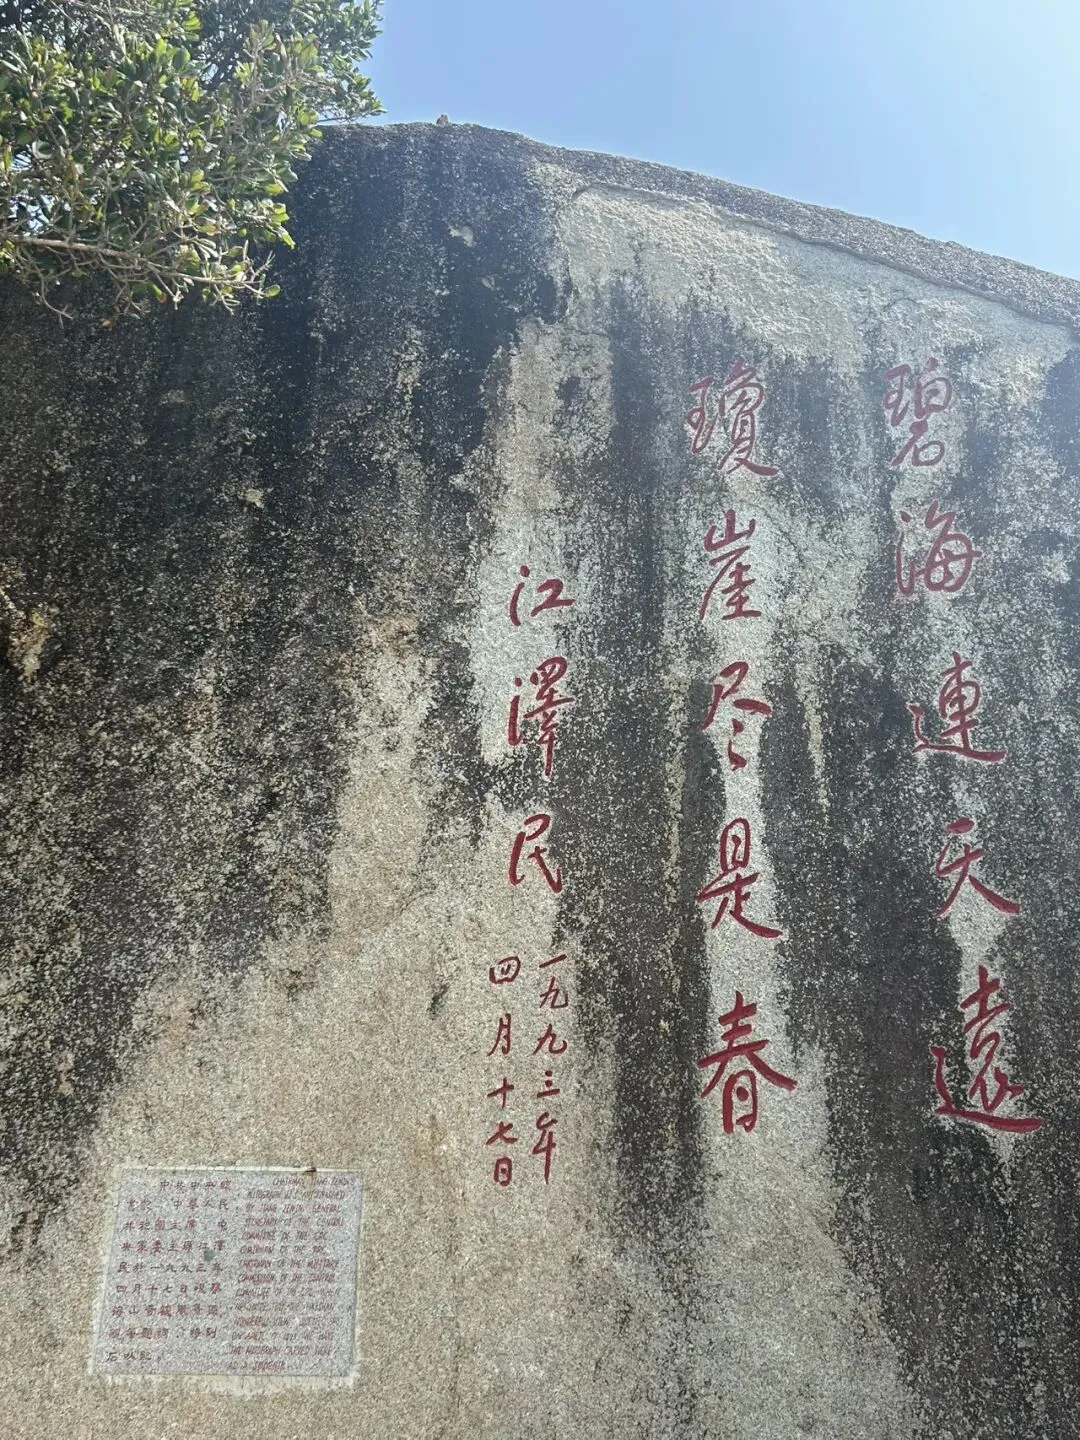 碧海連天遠
瓊崖尽是春
江澤民
一九九三年
四月十七日
中共中央總
書記、中華人民
共和國主席、中
央軍委主席江澤
民於一九九三年
四月十七日視察
CHAIRMAN JIANG ZEMIN'S
BY JIANG ZEMIN, GENERAL
SECRETARY OF THE CENTRAL
COMMITTEE OF THE CPC,
CHAIRMAN OF THE PRC,
CHAIRMAN OF THE MILITARY
THE AUTOGRAPH CARVED HERE
AS A